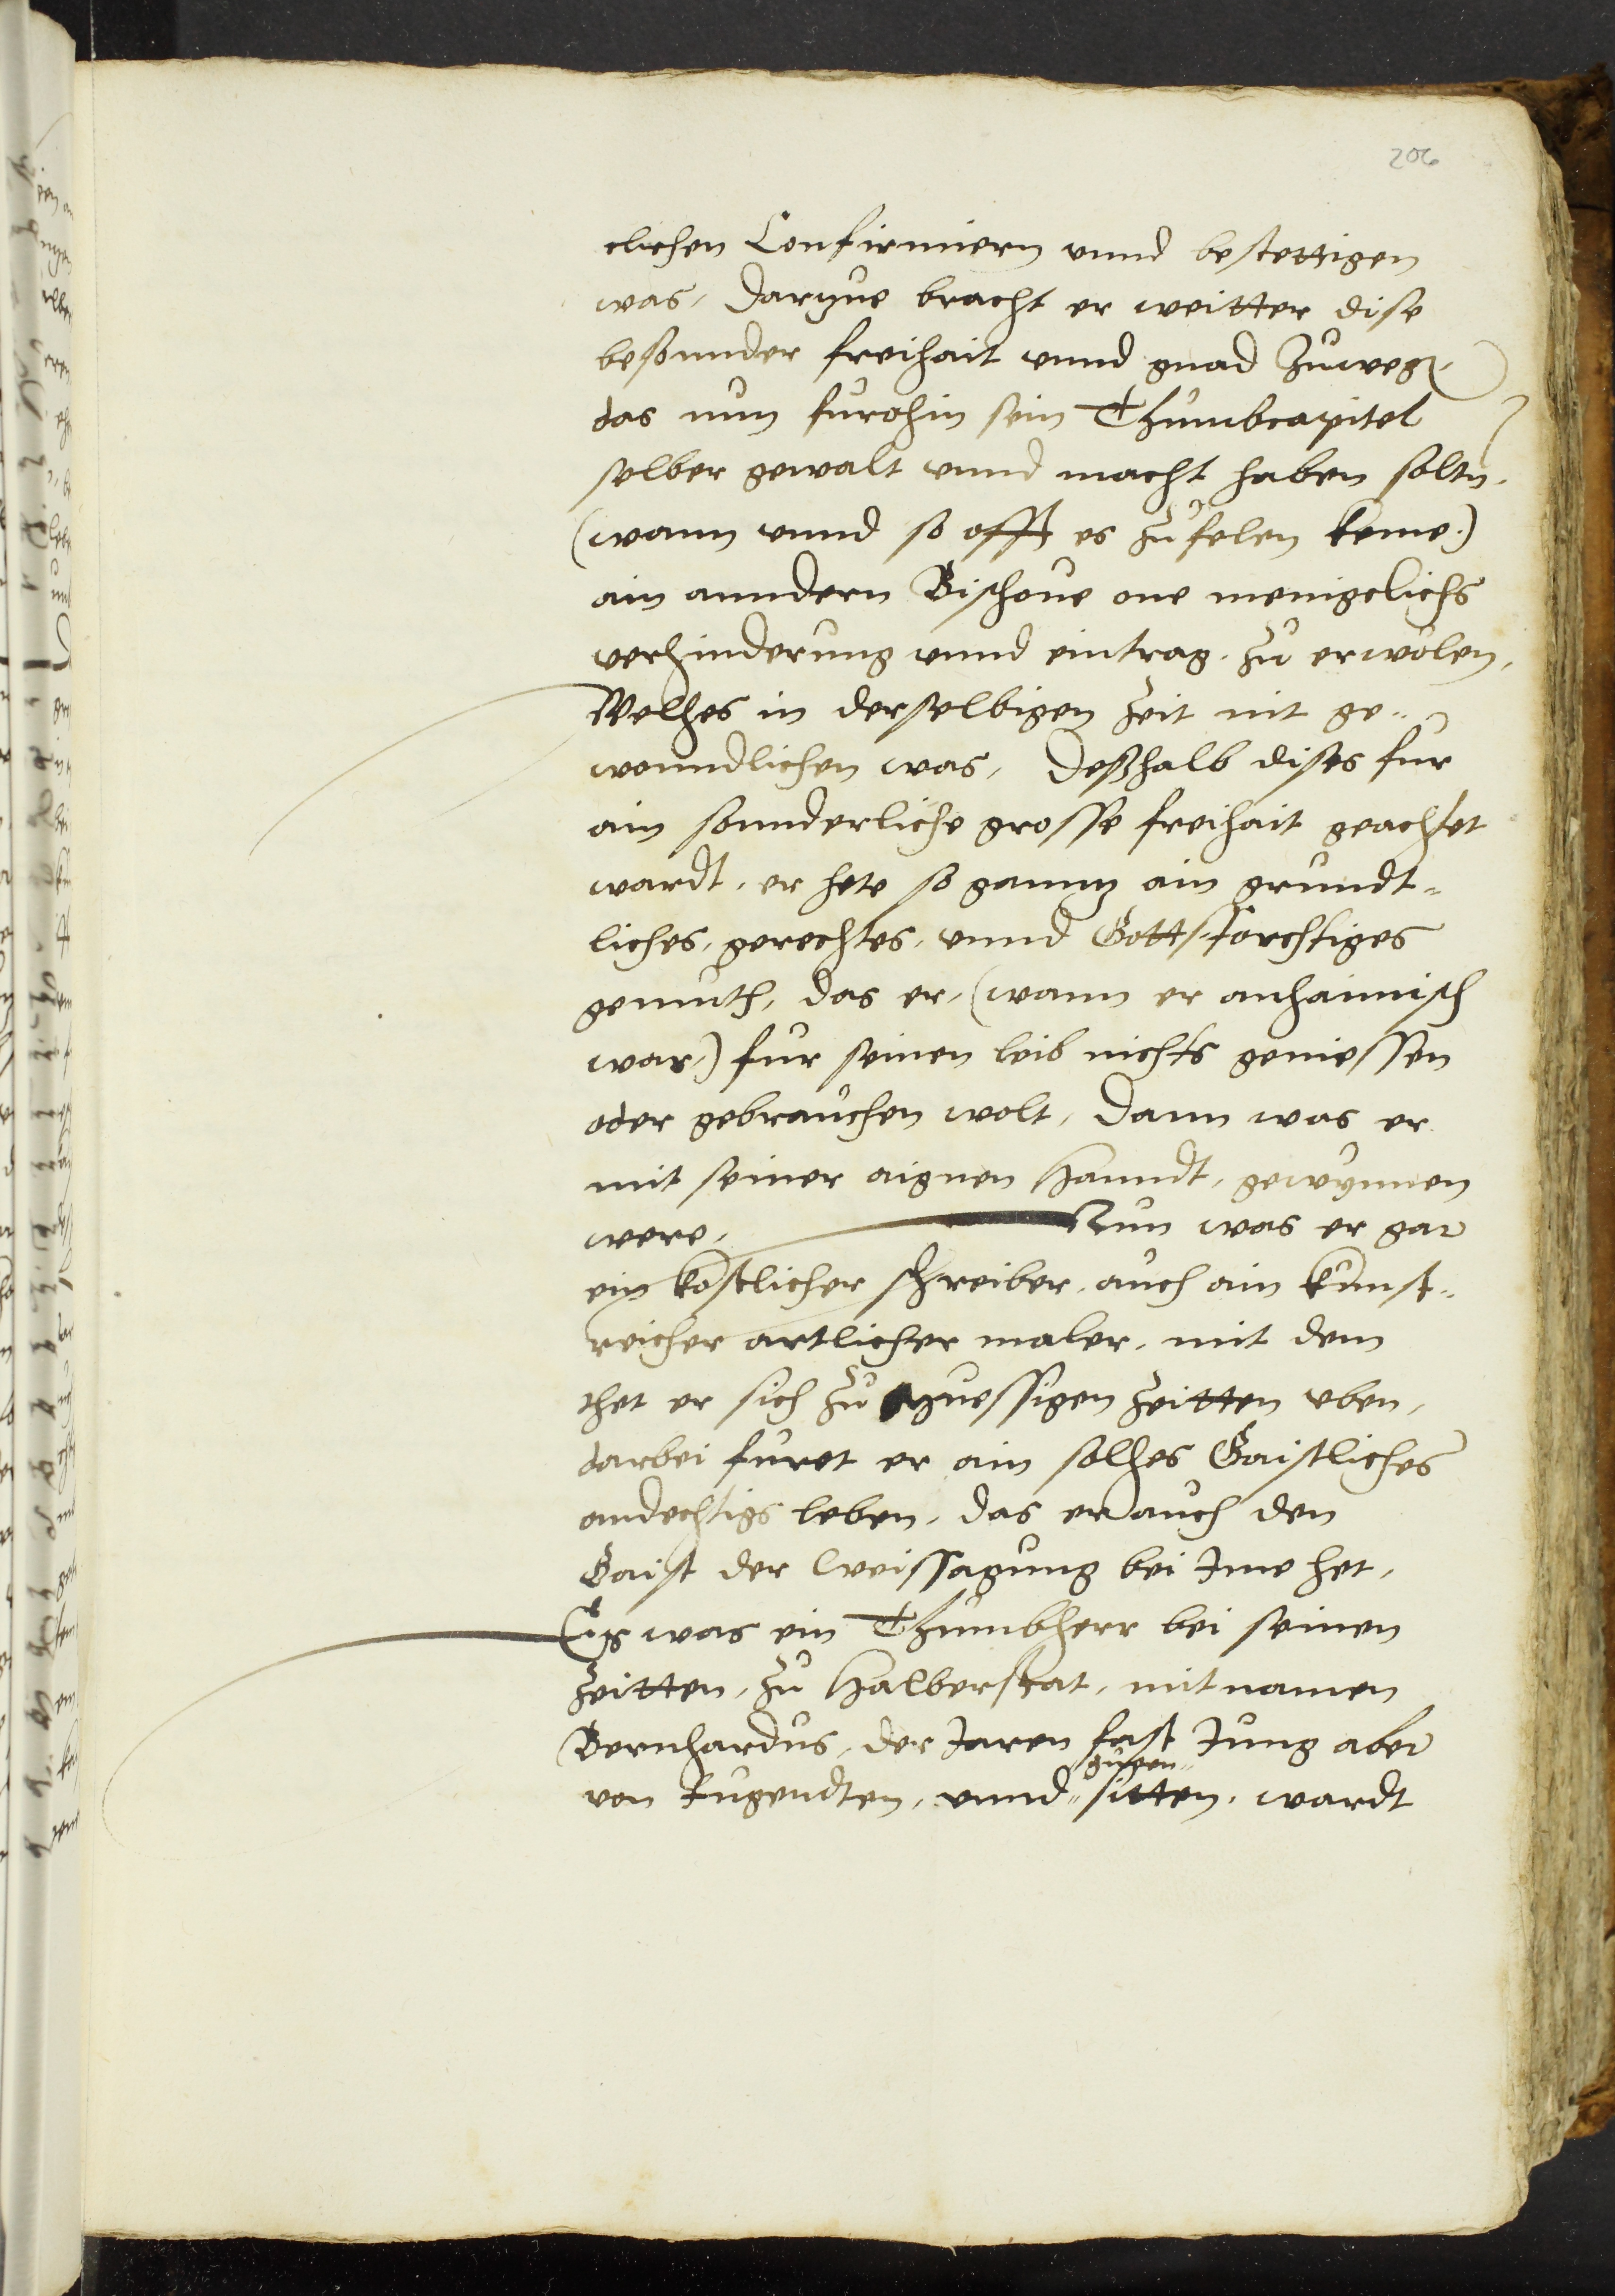 206
clichen Confirmiern vnnd bestettigen
was, Darzue bracht er weitter dise
besonnder freihait vnnd gnad zuwegen,
das nun furohin sein Thumbcapitel
selber gewalt vnnd macht haben solten,
(wann vnnd so offt es zu felen keme.)
ain anndern Bischoue one menigclichs
verhinderung vnnd eintrag, zu erwölen,
Welches in derselbigen zeit nit ge„
wonndlichen was, Deßhalb dises fur
ain sonnderliche grosse freihait geachtet
wardt, er hete so gannz ain grundt„
liches, gerechtes, vnnd Gottsforchtiges
gemuth, das er, (wann er anhaimisch
war,) fur seinen leib nichts geniessen
oder gebrauchen wolt, Dann was er
mit seiner aignen Hanndt, gewynnen
were, Nun was er gar
ein kostlicher schreiber, auch ain kunst„
reicher artlicher maler, mit dem
thet er sich zu muessigen zeitten vben,
darbei furet er ain solches Gaistliches
andechtigs leben, das er auch den
Gaist der weissagung bei Ime het,
Es was ein Thumbherr bei seinen
zeitten, zu Halberstat, mit namen
Bernhardus, der Jaren fast Jung aber
gueten„
von Tugendten, vnnd„ sitten, wardt